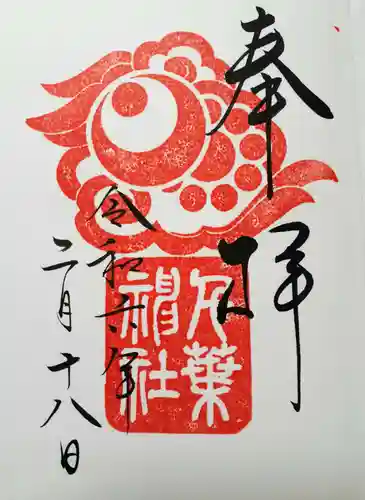 奉拝
令和六年
二月十八日
神社